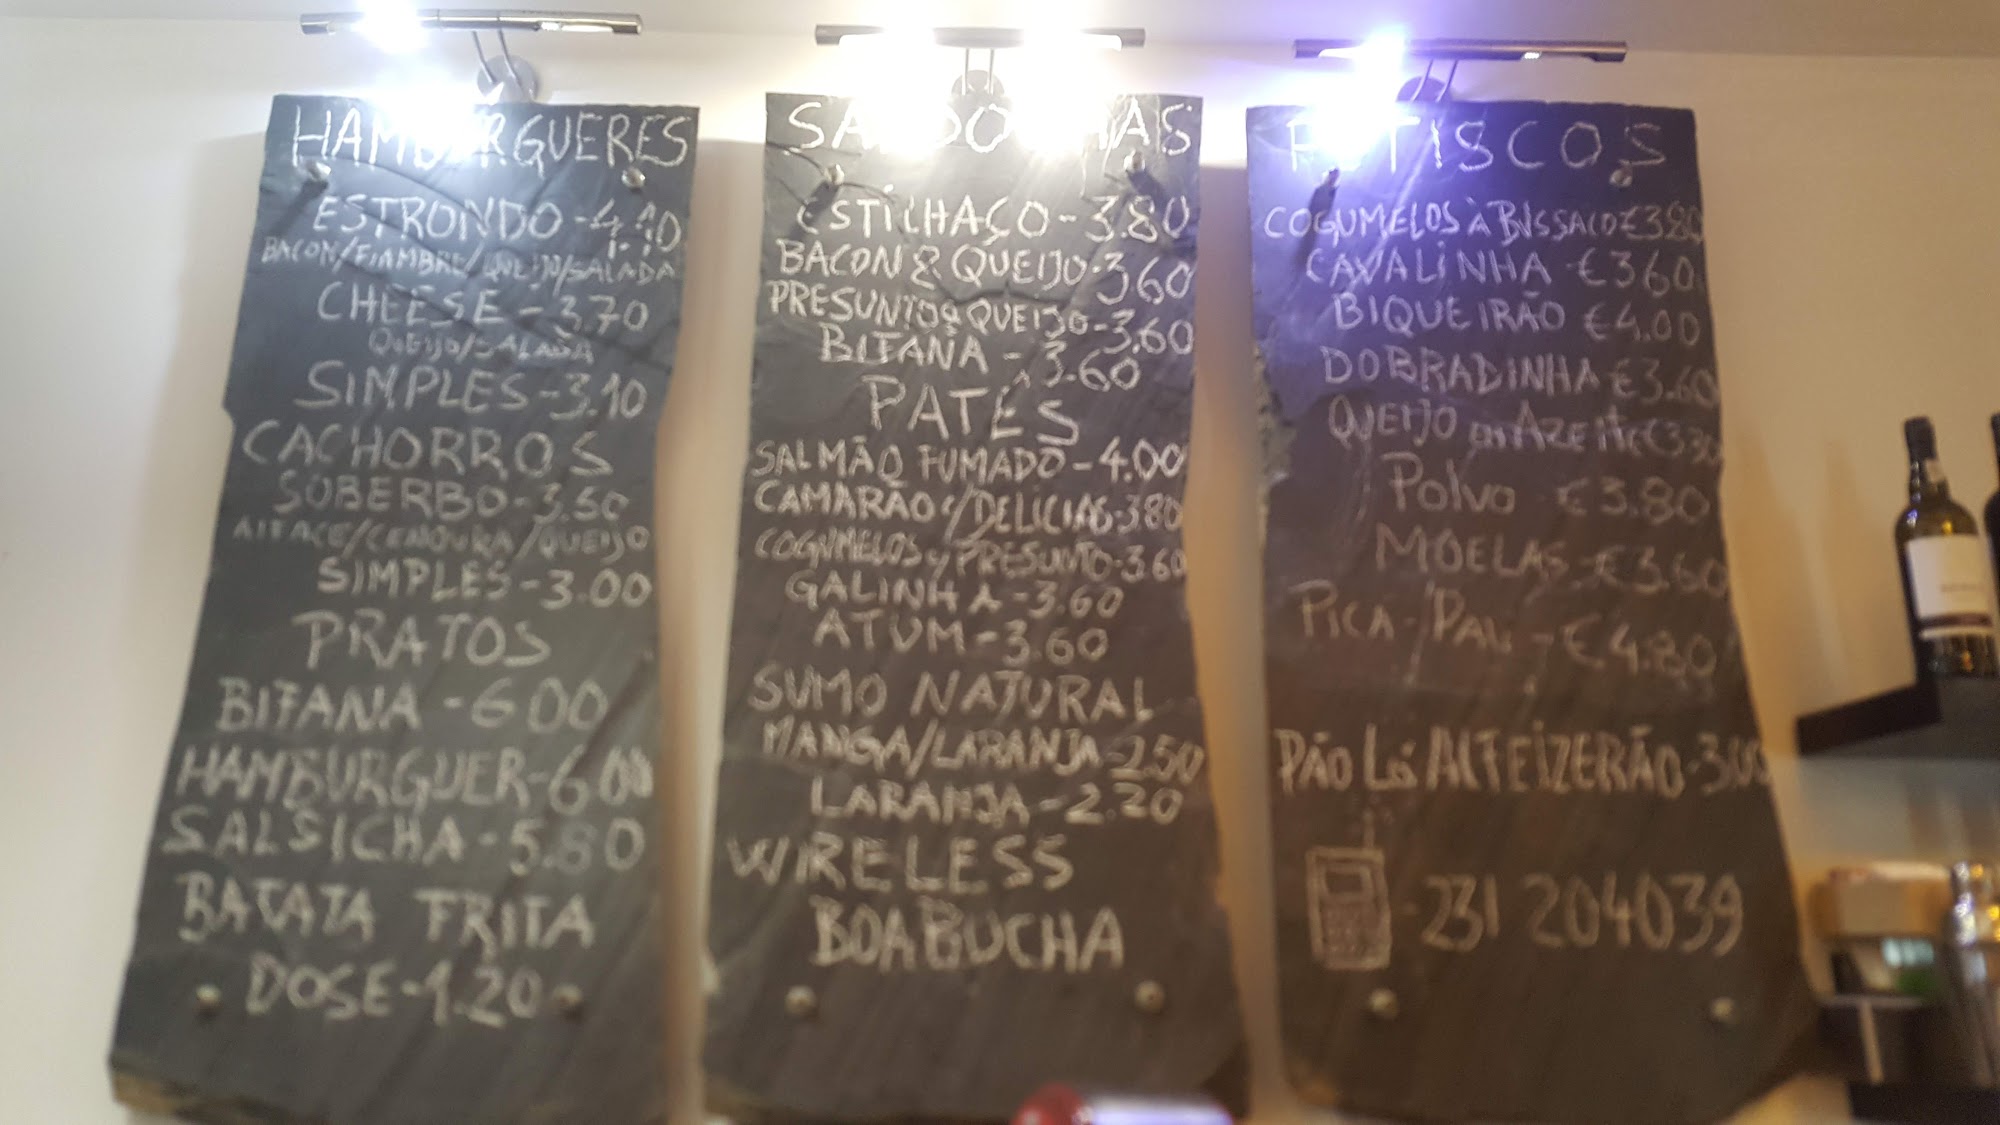 HAMBURGUERES
ESTRONDO - 4.10
BACON/FIAMBRE/QUEIJO/SALADA
CHEESE - 3.70
QUEIJO/SALADA
SIMPLES - 3.10
CACHORROS
SOBERBO - 3.50
ALFACE/CENOURA/QUEIJO
SIMPLES - 3.00
PRATOS
BIFANA - 6.00
HAMBURGUER - 6.00
SALSICHA - 5.80
BATATA FRITA
DOSE - 1.20
SANDOCHAS
ESTILHAÇO - 3.80
BACON & QUEIJO - 3.60
PRESUNTO & QUEIJO - 3.60
BIFANA - 3.60
PATÊS
SALMÃO FUMADO - 4.00
CAMARÃO c/DELÍCIAS - 3.80
COGUMELOS y PRESUNTO - 3.60
GALINHA - 3.60
ATUM - 3.60
SUMO NATURAL
MANGA/LARANJA - 2.50
LARANJA - 2.20
WIRELESS
BOABUCHA
PETISCOS
COGUMELOS À BISSACO €3.80
CAVALINHA €3.60
BIQUEIRÃO €4.00
DOBRADINHA €3.60
QUEIJO em AZEITE €3.30
POLVO €3.80
MOELAS €3.60
PICA-PAU - €4.80
PÃO LÓ ALFEIZERÃO - 3.00
- 231 204039